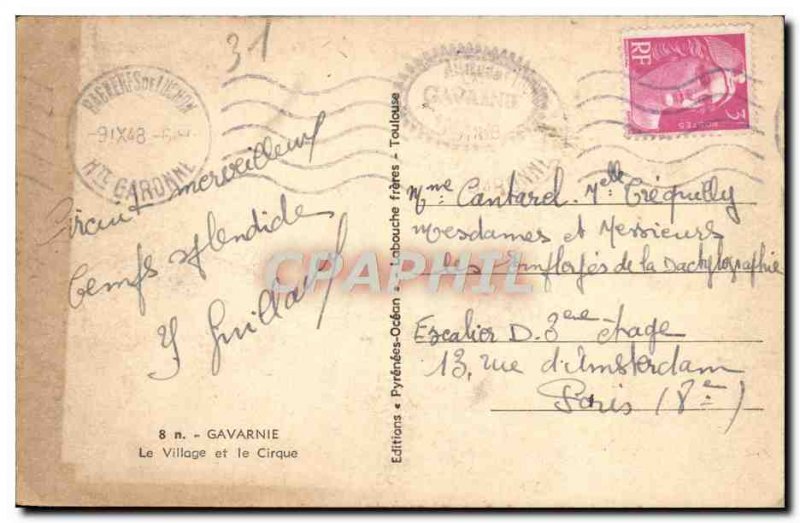 31
BAGNERES DE LUCHON
-9 IX 48
HTE GARONNE
GAVARNIE
RF
POSTES
3
Circuit merveilleux
temps splendide
Y Guillau
8 n. - GAVARNIE
Le Village et le Cirque
Editions « Pyrénées-Océan » Labouche frères - Toulouse
Mme Cantarel. Melle Tréquilly
Mesdames et Messieurs
les Employés de la Dactylographie
Escalier D. 3eme étage
13, rue d'Amsterdam
Paris (8e)
CPAPHIL